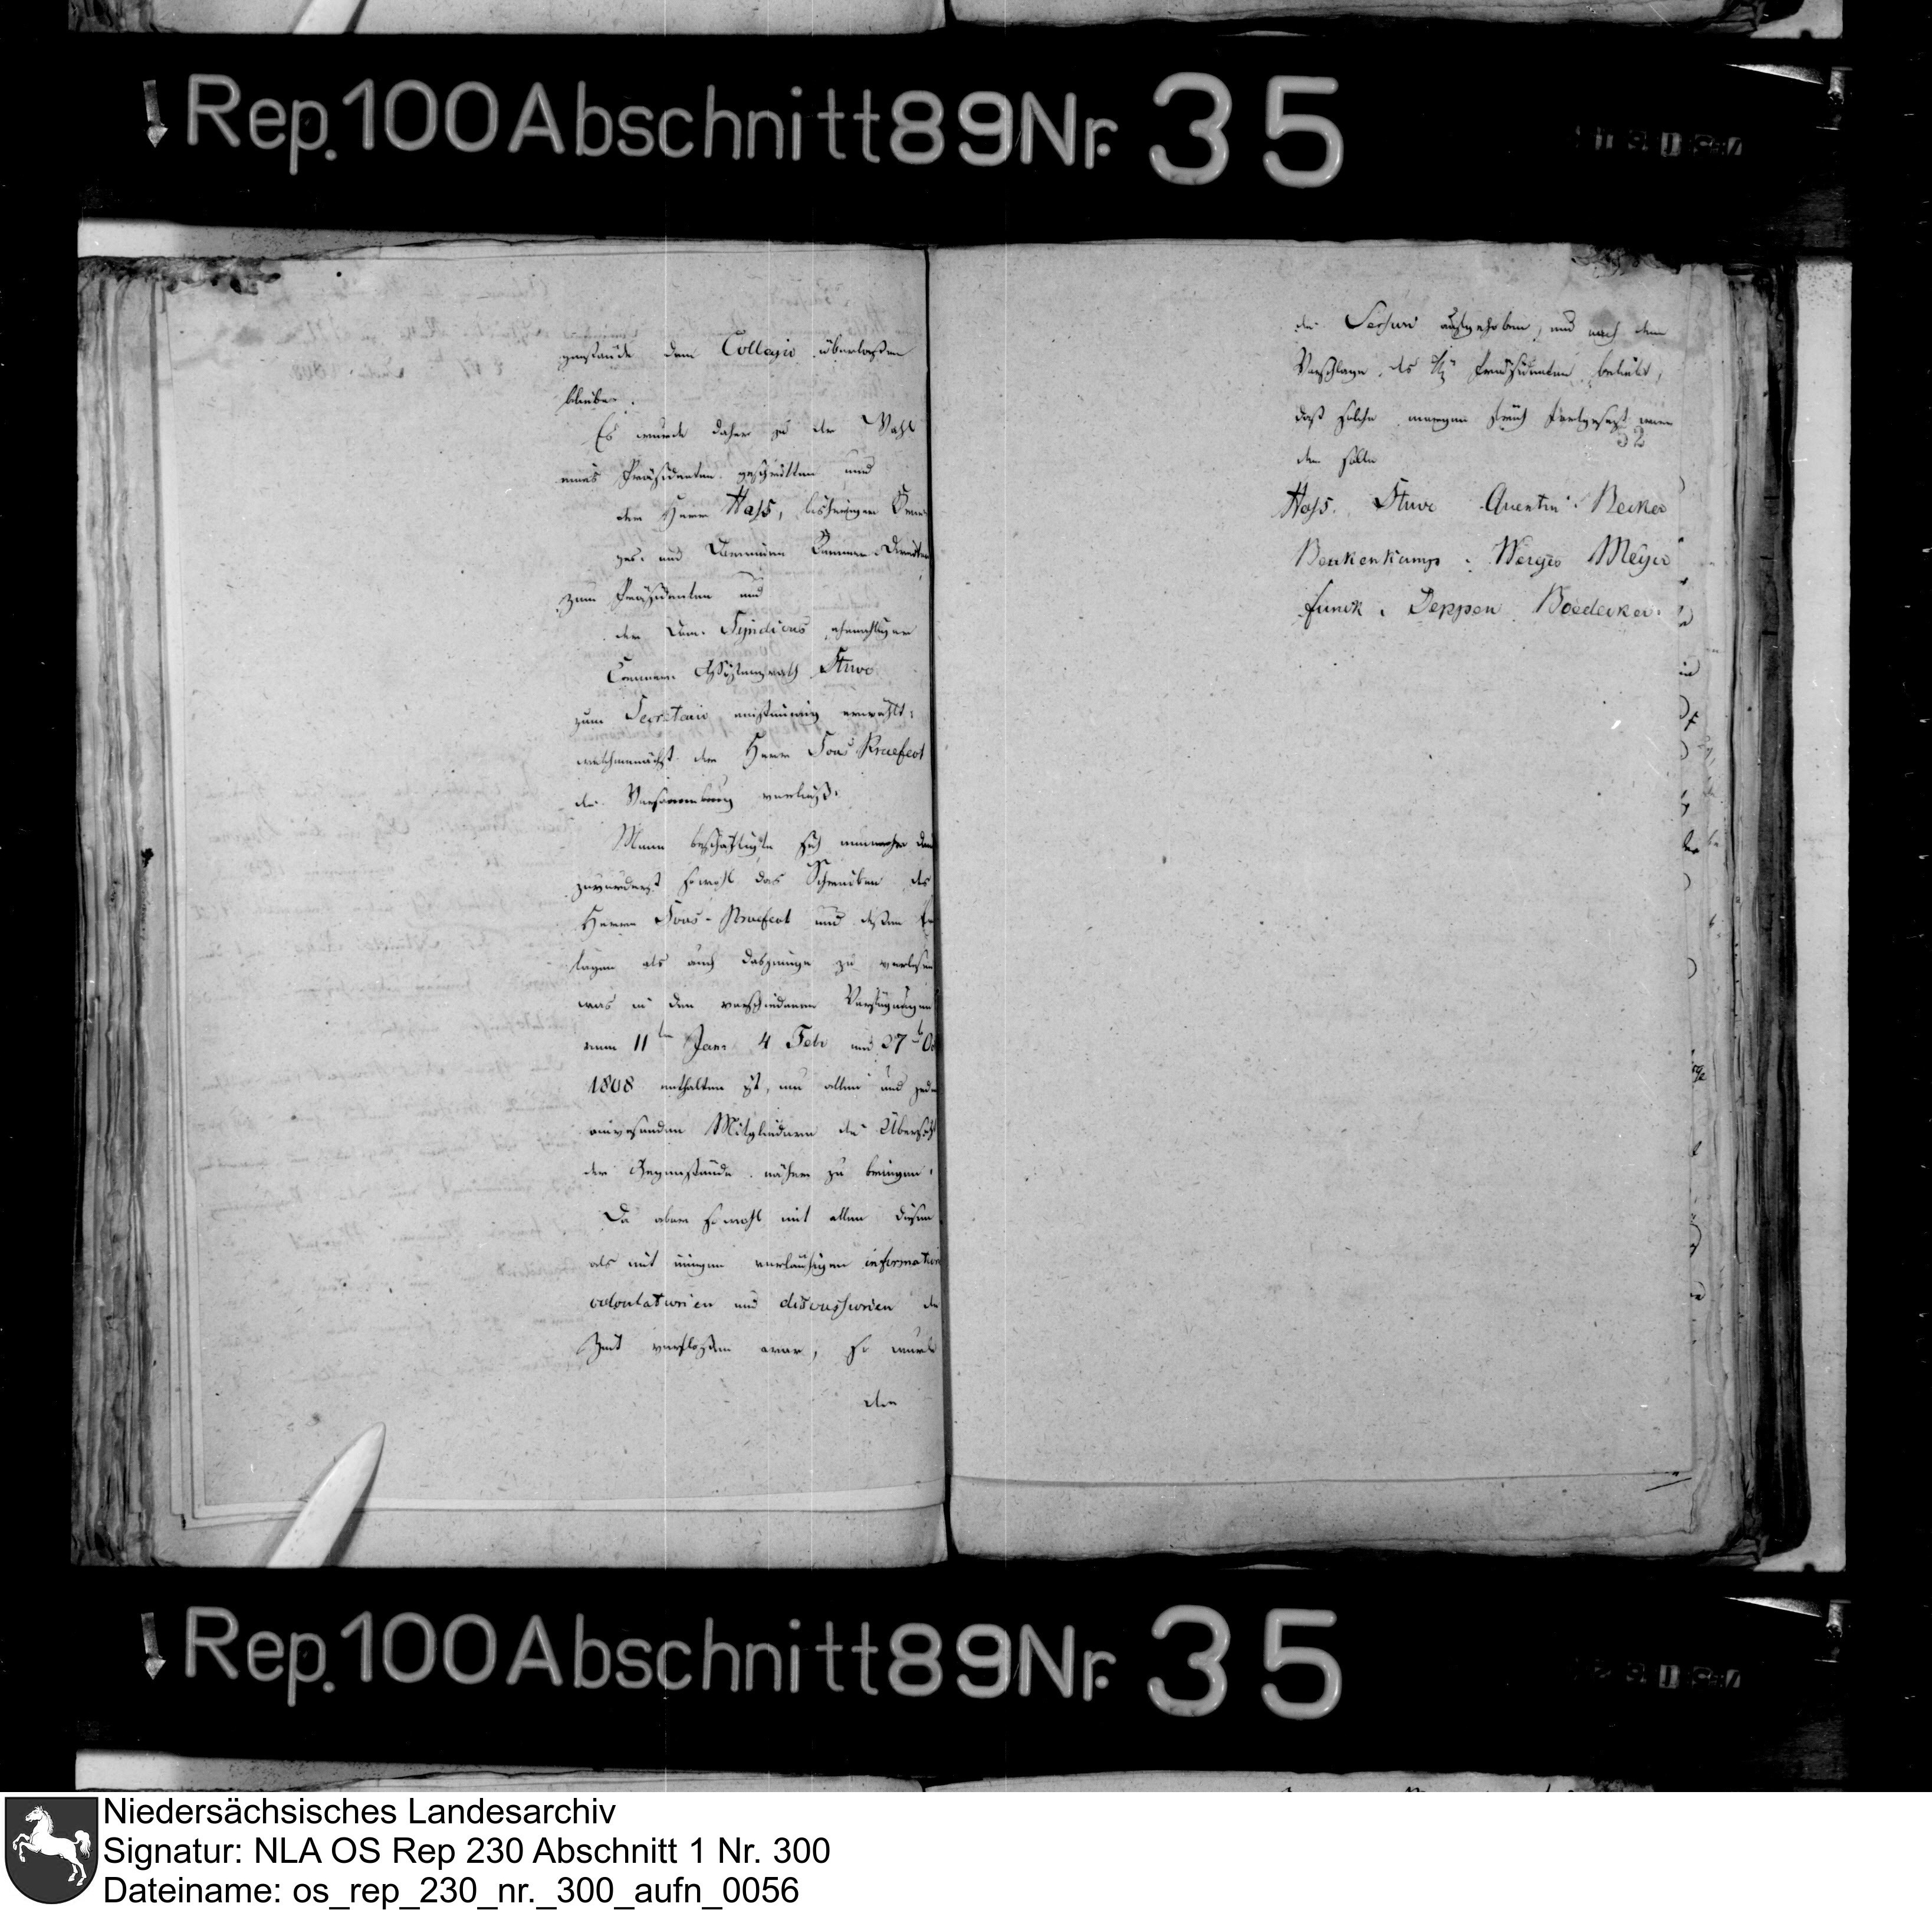 Rep. 100 Abschnitt 89 Nr. 35
genstände dem Collegio überlaßen
bleibe.
Es wurde daher zu der Wahl
eines Präsidenten geschritten und
der Herr Hass, bisheriger
und Domainen Kammer Director
zum Präsidenten und
der Dom. Syndicus, ehemaliger
Stuve
zum Secretario einstimmig erwählt;
welchemnächst der Herr Sous Praefect
die Versammlung verließ.
Mann beschäftigte sich nunmehr
zuvorderst sowohl das Schreiben des
Herrn Sous-Praefect und deßen
lagen als auch dasjenige zu verlesen
was in den verschiedenen Verfügungen
vom 11ten Jan. 4 Febr und 27t
1808 enthalten ist, um allen und
anwesenden Mitgliedern die Übersicht
der Gegenstände näher zu bringen.
Da aber sowohl mit allen diesen
als mit einigen vorläufigen information
calculationen und discussionen die
Zeit verfloßen war, so wurde
die
die Session aufgehoben, und nach dem
Vorschlage des Präsidenten beliebt,
daß solche morgen früh fortgesetzt wer
52
den solle
Hass. Stuve Quentin. Becker
Berkenkamp. Werges Meyer
Funck. Deppen Boedeker.
Rep. 100 Abschnitt 89 Nr. 35
Niedersächsisches Landesarchiv
Signatur: NLA OS Rep 230 Abschnitt 1 Nr. 300
Dateiname: os_rep_230_nr._300_aufn_0056